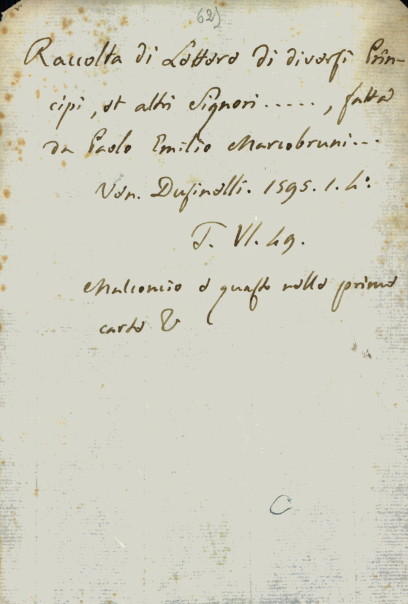 62)
Raccolta di Lettere di diversi Prin-
cipi, et altri Signori....., fatta
da Paolo Emilio Marcobruni...
Ven. Dusinelli. 1595. 1. 4°.
T. VI. 49.
Malconcio e guasto nelle prime
carte
C